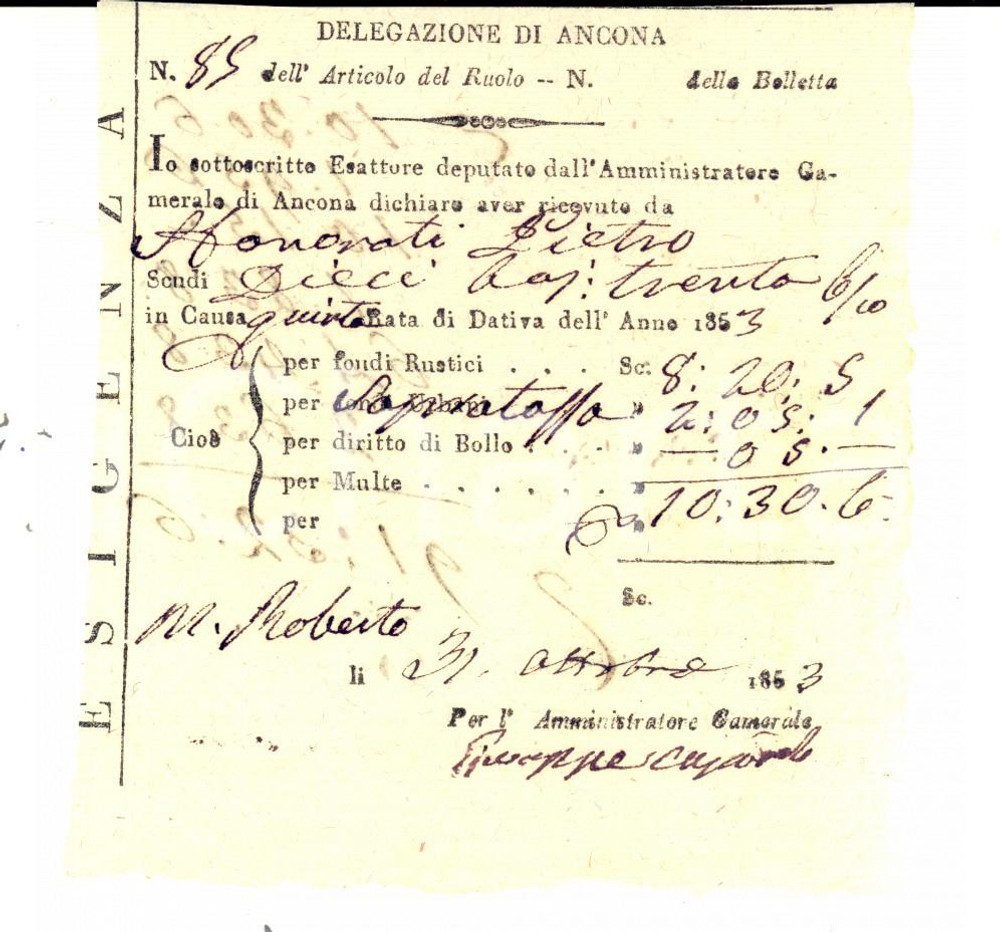 DELEGAZIONE DI ANCONA
N. 85 dell' Articolo del Ruolo -- N. della Bolletta
Io sottoscritto Esattore deputato dall'Amministratore Ca-
merale di Ancona dichiaro aver ricevuto da
Honorati Pietro
Scudi Dieci baj: trenta 6/10
in Causa quinta Rata di Dativa dell' Anno 1853
Cioè
per fondi Rustici . . . Sc. 8: 20: 5
per fondi Urbani Sopratassa " 2: 05: 1
per diritto di Bollo . . . " — 05. —
per Multe . . . . . . " 10: 30. 6.
per "
Sc.
M. Roberto
li 31. Ottobre 1853
Per l' Amministratore Camerale
Giuseppe
ESIGENZA